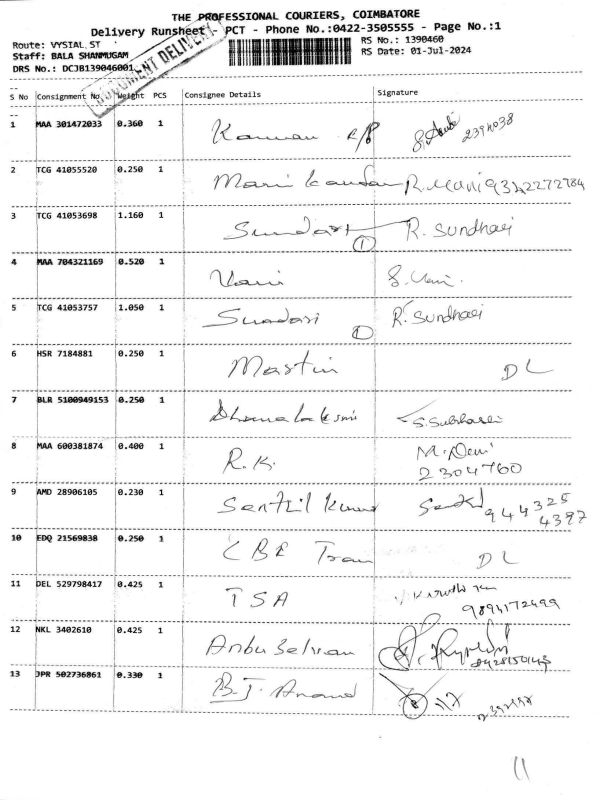 THE PROFESSIONAL COURIERS, COIMBATORE
Delivery Runsheet - PCT - Phone No.:0422-3505555 - Page No.:1
Route: VYSIAL ST
RS No.: 1390460
Staff: BALA SHANMUGAM
RS Date: 01-Jul-2024
DRS No.: DCJB139046001
DELIVERY
S No Consignment No. Weight PCS Consignee Details Signature
1 MAA 301472033 0.360 1 Kannan
2394038
2 TCG 41055520 0.250 1 Mani kandan R. Mani 9342272784
3 TCG 41053698 1.160 1 Sundari 1 R. Sundhari
4 MAA 704321169 0.520 1 Vani S. Vani.
5 TCG 41053757 1.050 1 Sundari 1 R. Sundhari
6 HSR 7184881 0.250 1 Martin DL
7 BLR 5100949153 0.250 1 Dhanalaksmi
8 MAA 600381874 0.400 1 R.K. M. Devi
2304760
9 AMD 28906105 0.230 1 Senthil Kumar
944325
4397
10 EDQ 21569838 0.250 1 CBE Tran DL
11 DEL 529798417 0.425 1 TSA
9894172499
12 NKL 3402610 0.425 1 Anbu Selvan
13 JPR 502736861 0.330 1 B.J. Anand